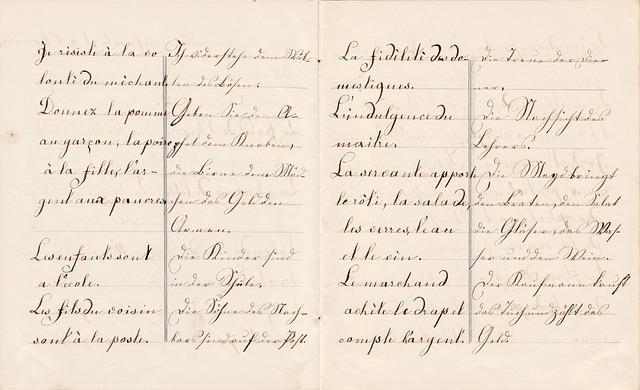 Je résiste à la vo-
lonté du méchant.
Donnez la pomme
au garçon, la poire
à la fille, l'ar-
gent aux pauvres.
Les enfants sont
a l'école.
Les fils du voisin
sont à la poste.
Ich widerstehe dem Wil-
len des Bösen.
Geben Sie den A-
pfel dem Knaben,
die Birne dem Mäd-
chen das Geld den
Armen.
Die Kinder sind
in der Schule.
Die Söhne des Nach-
bars sind auf der Post.
La fidélité des do-
mestiques.
L'indulgence du
maître.
La servante apporte
le rôti, la salade,
les verres, l'eau
et le vin.
Le marchand
achète le drap et
compte l'argent.
Die Treue der Die-
ner.
Die Nachsicht des
Lehrers.
Die Magd bringt
den Braten, den Salat
die Gläser, das Was-
ser und den Wein.
Der Kaufmann kauft
das Tuch und zählt das
Geld.